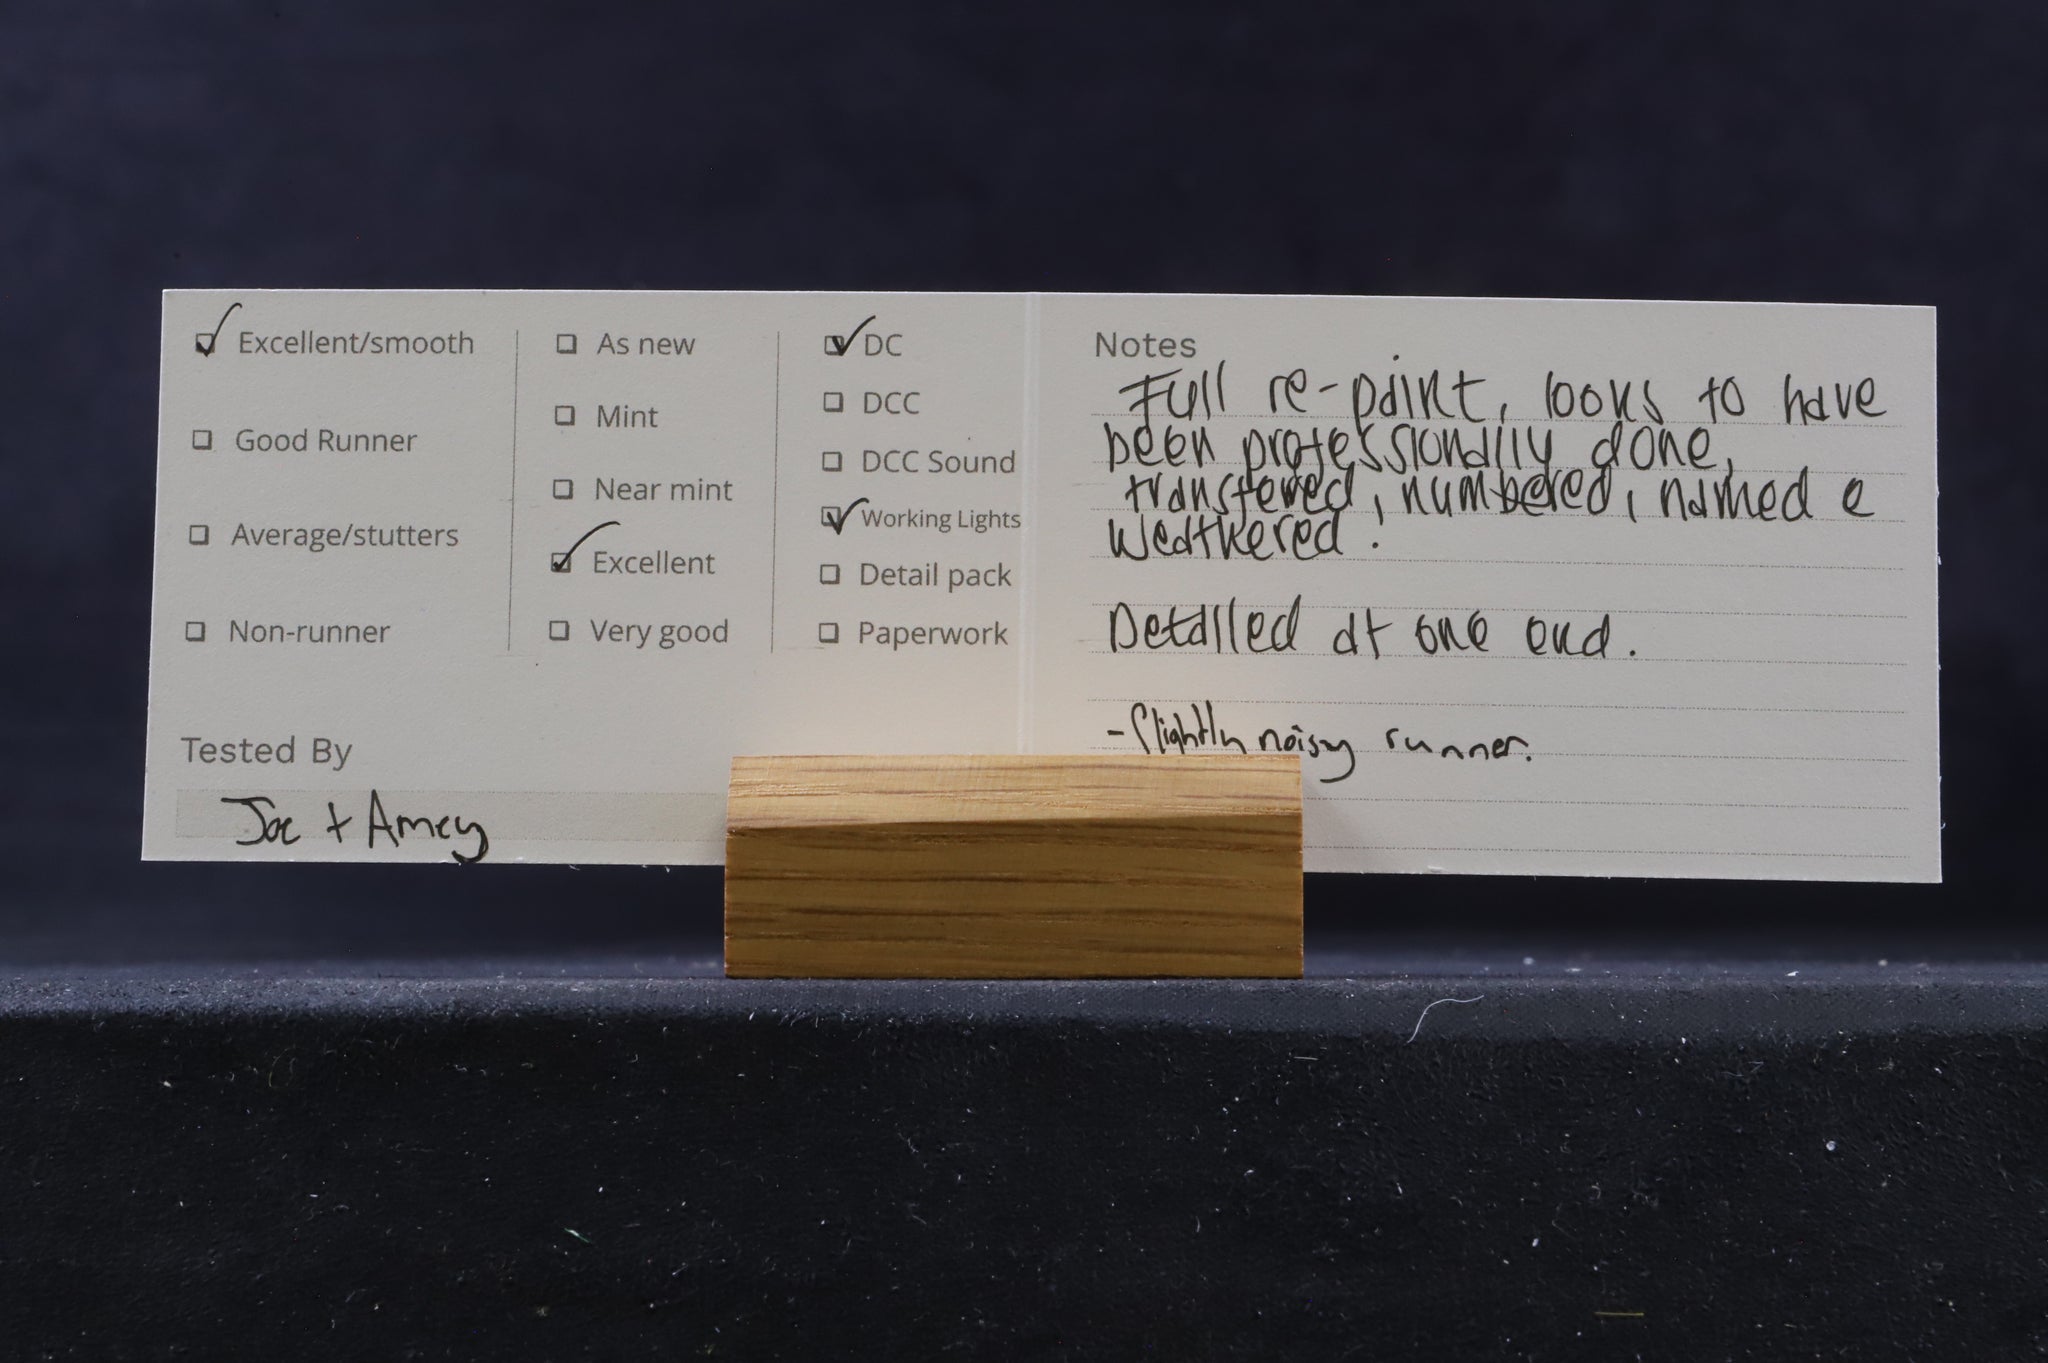 Excellent/smooth
Good Runner
Average/stutters
Non-runner
As new
Mint
Near mint
Excellent
Very good
DC
DCC
DCC Sound
Working Lights
Detail pack
Paperwork
Tested By
Joe + Amey
Notes
Full re-paint, looks to have
been professionally done,
transfered, numbered, named e
weathered.
Detailed at one end.
- Slightly noisy runner.